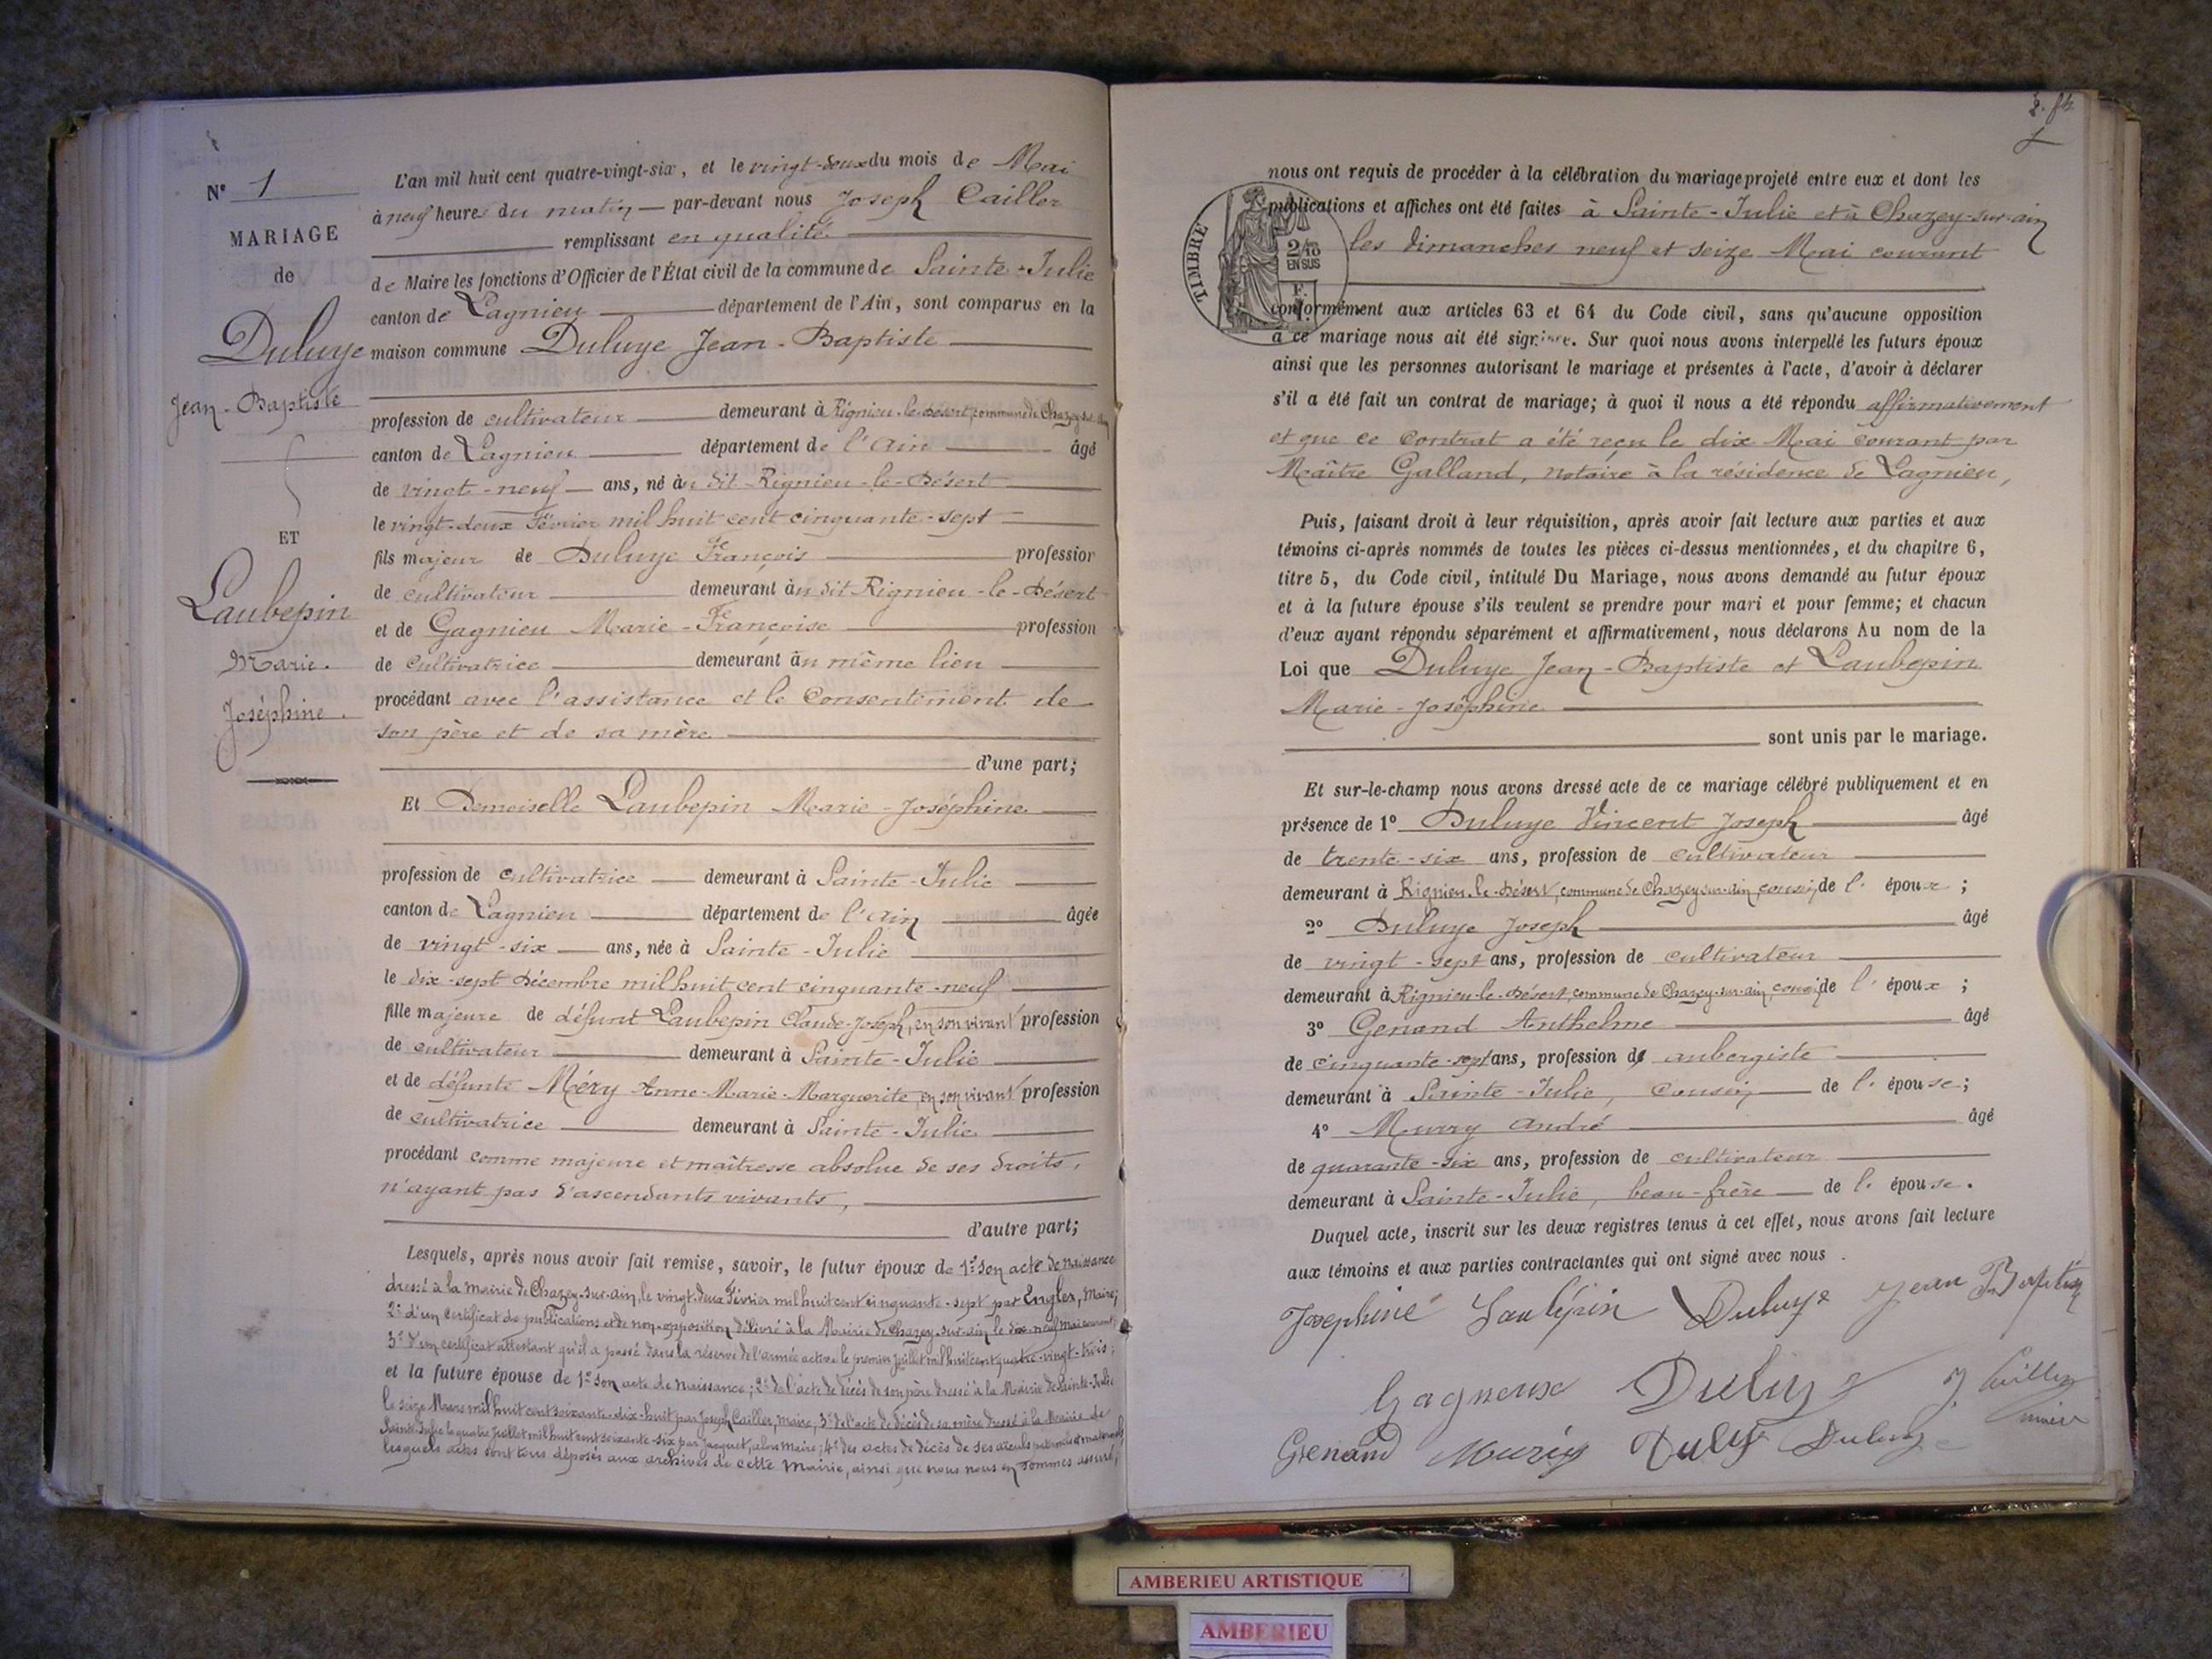 N° 1
MARIAGE
de
Duluye
Jean-Baptiste
ET
Laubepin
Marie-
Joséphine.
L'an mil huit cent quatre-vingt-six, et le vingt-deux du mois de Mai
à neuf heures du matin — par-devant nous Joseph Cailler
remplissant en qualité
de Maire les fonctions d'Officier de l'État civil de la commune de Sainte-Julie
canton de Lagnieu département de l'Ain, sont comparus en la
maison commune Duluye Jean-Baptiste
profession de cultivateur demeurant à Rignieu-le-Désert, commune de Chazey-sur-ain
canton de Lagnieu département de l'Ain âgé
de vingt-neuf ans, né au dit Rignieu-le-Désert
le vingt-deux Février mil huit cent cinquante-sept
fils majeur de Duluye François profession
de cultivateur demeurant au dit Rignieu-le-Désert
et de Gagnieu Marie-Françoise profession
de cultivatrice demeurant au même lieu
procédant avec l'assistance et le consentement de
son père et de sa mère
d'une part;
Et Demoiselle Laubepin Marie-Joséphine
profession de cultivatrice demeurant à Sainte-Julie
canton de Lagnieu département de l'Ain âgée
de vingt-six ans, née à Sainte-Julie
le dix-sept Décembre mil huit cent cinquante-neuf
fille majeure de défunt Laubepin Claude-Joseph, en son vivant profession
de cultivateur demeurant à Sainte-Julie
et de défunte Méry Anne-Marie-Marguerite, en son vivant profession
de cultivatrice demeurant à Sainte-Julie
procédant comme majeure et maîtresse absolue de ses droits,
n'ayant pas d'ascendants vivants,
d'autre part;
Lesquels, après nous avoir fait remise, savoir, le futur époux de 1° son acte de naissance
dressé à la Mairie de Chazey-sur-ain, le vingt-deux Février mil huit cent cinquante-sept par Engler, Maire;
2° d'un certificat de publications et de non-opposition délivré à la Mairie de Chazey-sur-ain le dix-neuf mai courant;
3° d'un certificat attestant qu'il a passé dans la réserve de l'armée active le premier juillet mil huit cent quatre-vingt-trois;
et la future épouse de 1° son acte de naissance; 2° de l'acte de décès de son père dressé à la Mairie de Sainte-Julie
le seize Mars mil huit cent soixante-dix-huit par Joseph Cailler, maire; 3° de l'acte de décès de sa mère dressé à la Mairie de
Sainte-Julie le quatre Juillet mil huit cent soixante-six par Jacquet, alors Maire; 4° des actes de décès de ses aïeuls paternels et maternels
lesquels actes sont tous déposés aux archives de cette Mairie, ainsi que nous nous en sommes assuré,
TIMBRE
2/10
EN SUS
nous ont requis de procéder à la célébration du mariage projeté entre eux et dont les
publications et affiches ont été faites à Sainte-Julie et à Chazey-sur-ain
les dimanches neuf et seize Mai courant
conformément aux articles 63 et 64 du Code civil, sans qu'aucune opposition
à ce mariage nous ait été signifiée. Sur quoi nous avons interpellé les futurs époux
ainsi que les personnes autorisant le mariage et présentes à l'acte, d'avoir à déclarer
s'il a été fait un contrat de mariage; à quoi il nous a été répondu affirmativement
et que ce contrat a été reçu le dix Mai courant par
Maître Galland, notaire à la résidence de Lagnieu,
Puis, faisant droit à leur réquisition, après avoir fait lecture aux parties et aux
témoins ci-après nommés de toutes les pièces ci-dessus mentionnées, et du chapitre 6,
titre 5, du Code civil, intitulé Du Mariage, nous avons demandé au futur époux
et à la future épouse s'ils veulent se prendre pour mari et pour femme; et chacun
d'eux ayant répondu séparément et affirmativement, nous déclarons Au nom de la
Loi que Duluye Jean-Baptiste et Laubepin
Marie-Joséphine
sont unis par le mariage.
Et sur-le-champ nous avons dressé acte de ce mariage célébré publiquement et en
présence de 1° Duluye Vincent Joseph âgé
de trente-six ans, profession de cultivateur
demeurant à Rignieu-le-Désert, commune de Chazey-sur-ain, cousin de l' époux;
2° Duluye Joseph âgé
de vingt-sept ans, profession de cultivateur
demeurant à Rignieu-le-Désert, commune de Chazey-sur-ain, cousin de l' époux;
3° Genand Anthelme âgé
de cinquante-sept ans, profession d' aubergiste
demeurant à Sainte-Julie, cousin de l' épouse;
4° Murry André âgé
de quarante-six ans, profession de cultivateur
demeurant à Sainte-Julie, beau-frère de l' épouse.
Duquel acte, inscrit sur les deux registres tenus à cet effet, nous avons fait lecture
aux témoins et aux parties contractantes qui ont signé avec nous.
Josephine Laubépin Duluye Jean Baptiste
Gagneux Duluye J. Cailler
maire
Genand Muréy Duluye Duluye
AMBERIEU ARTISTIQUE
AMBERIEU